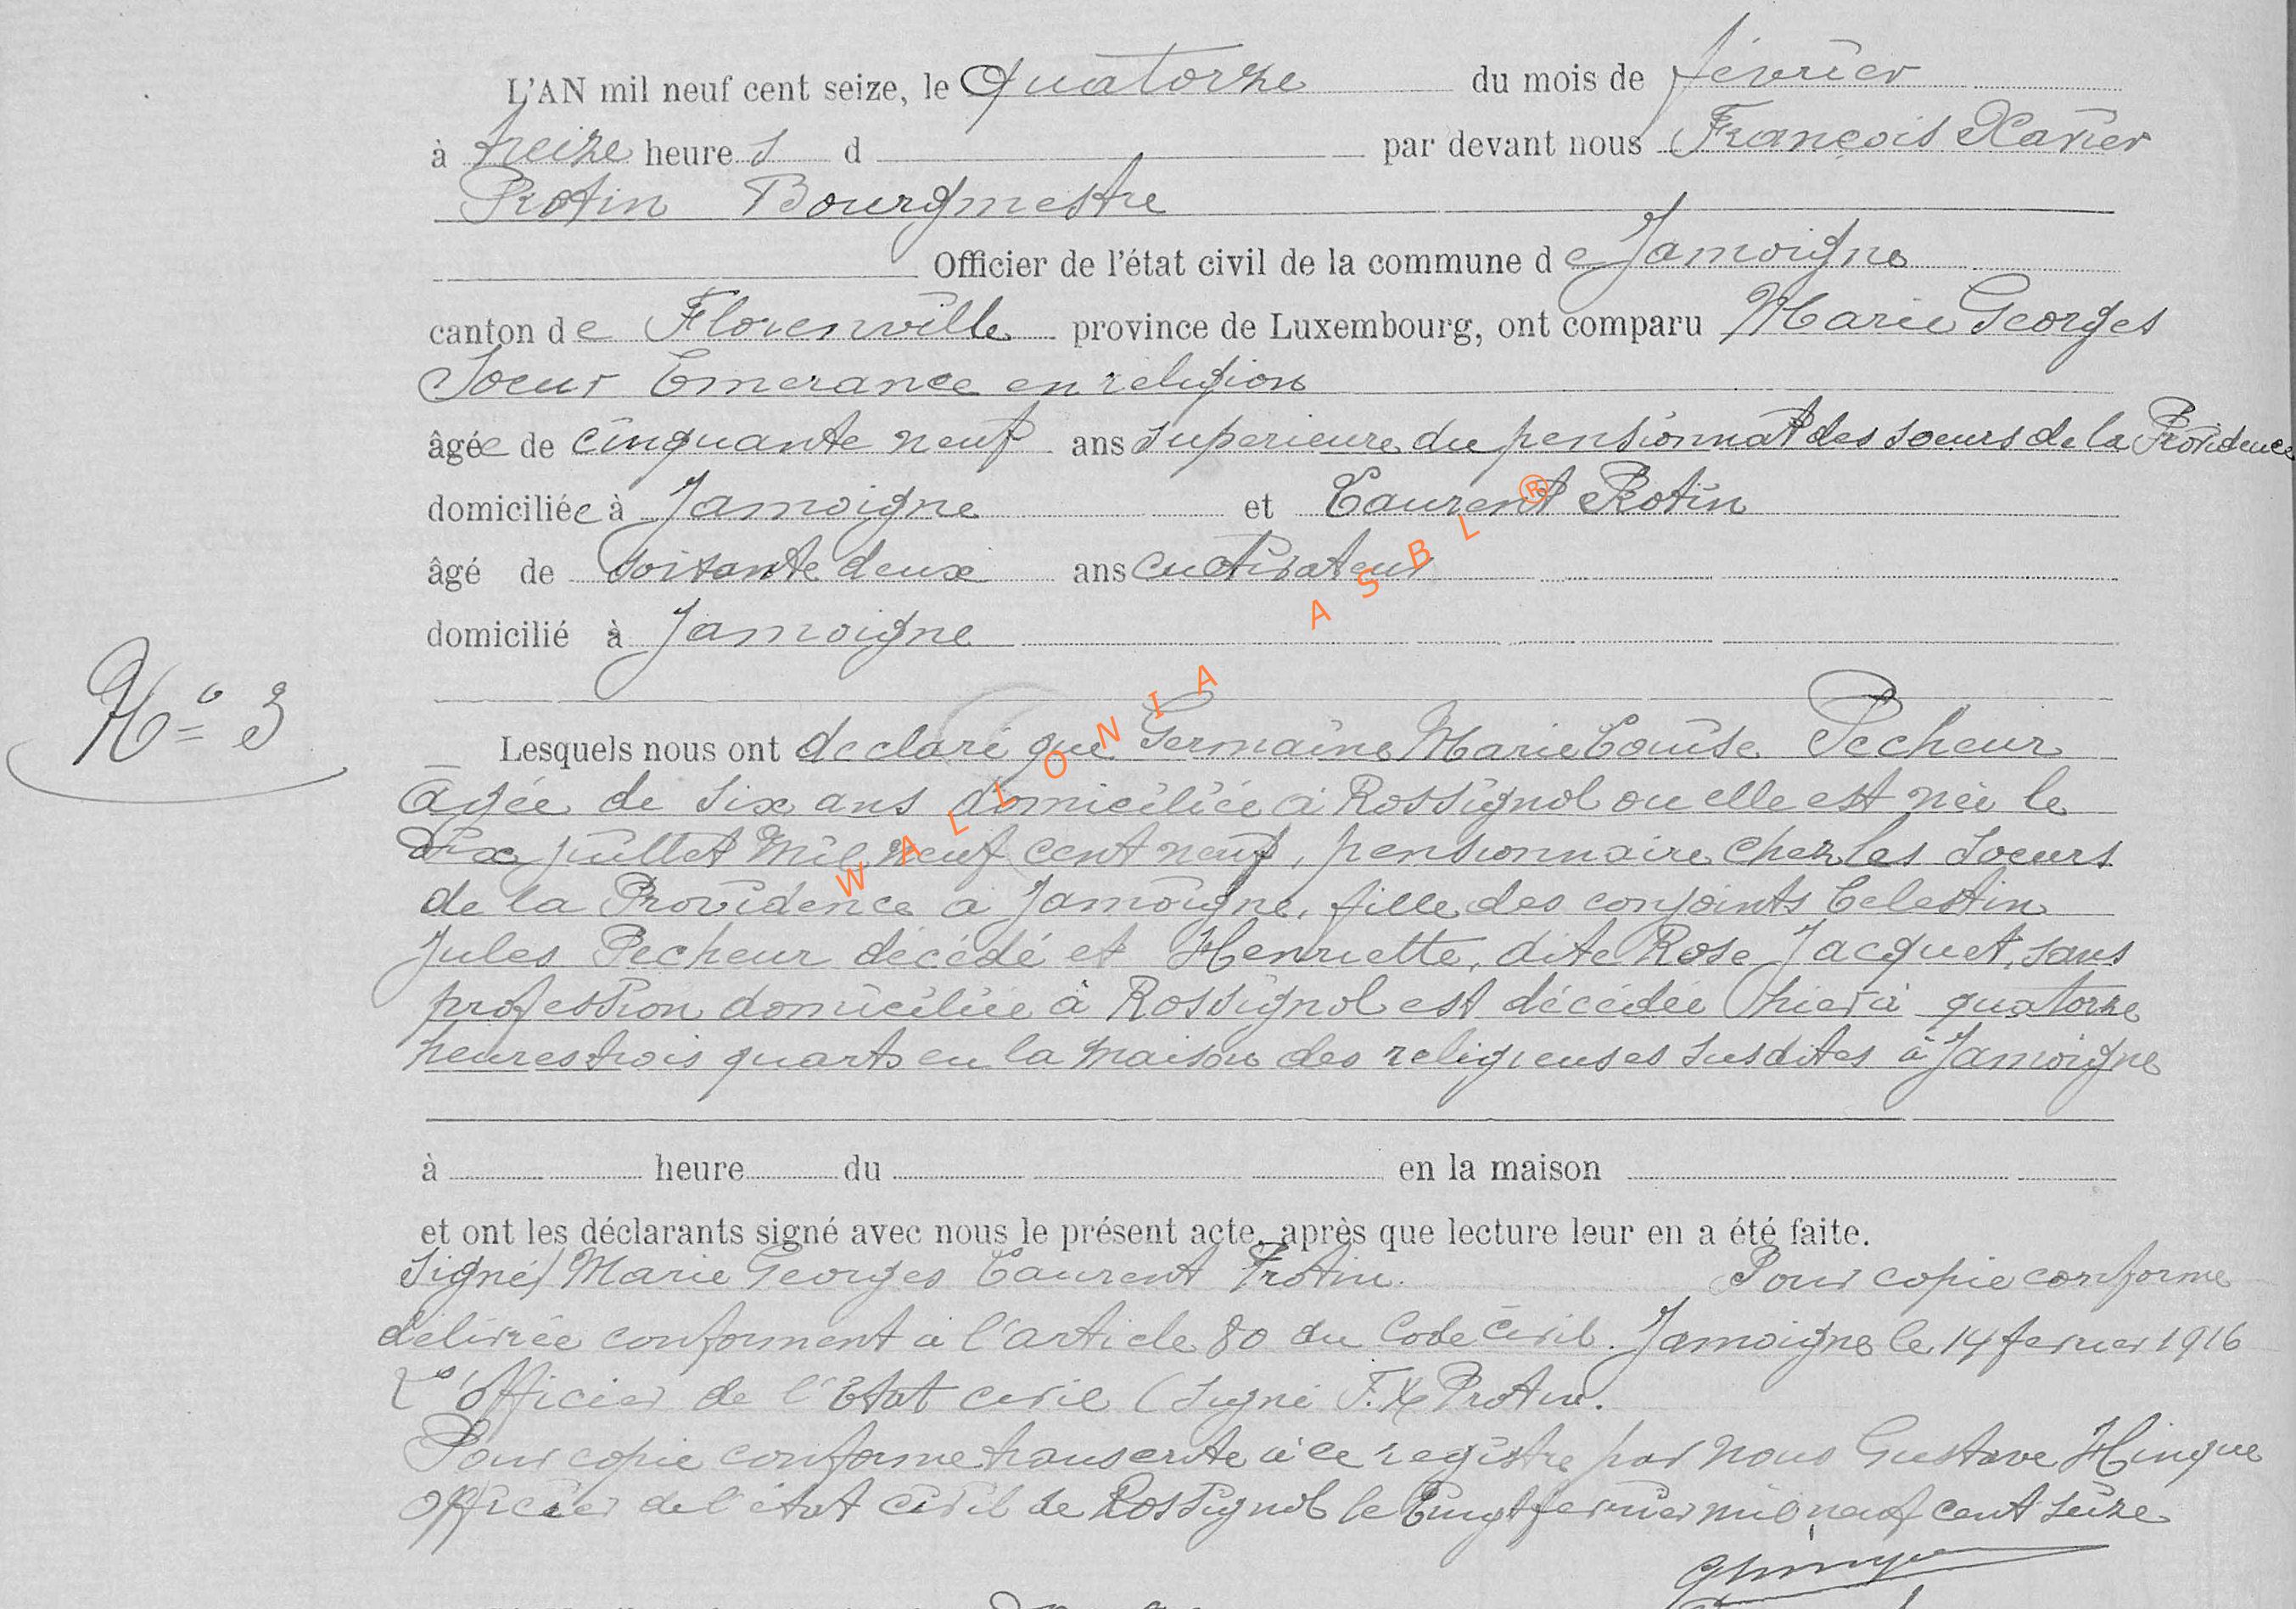 L'AN mil neuf cent seize, le quatorze du mois de février
à treize heures d par devant nous François Xavier
Protin Bourgmestre
Officier de l'état civil de la commune de Jamoigne
canton de Florenville province de Luxembourg, ont comparu Marie Georges
Soeur Emerance en religion
âgée de cinquante neuf ans superieure du pensionnat des soeurs de la Providence
domiciliée à Jamoigne et Laurent Protin
âgé de soixante deux ans cultivateur
domicilié à Jamoigne
N° 3
Lesquels nous ont declaré que Germaine Marie Louise Pecheur
agée de six ans domiciliée à Rossignol ou elle est née le
dix juillet mil neuf cent neuf, pensionnaire chez les soeurs
de la Providence a Jamoigne, fille des conjoints Celestin
Jules Pecheur décédé et Henriette, dite Rose Jacquet, sans
profession domiciliée à Rossignol est décédée hier à quatorze
heures trois quarts en la maison des religieuses susdites à Jamoigne
à heure du en la maison
et ont les déclarants signé avec nous le présent acte, après que lecture leur en a été faite.
Signé) Marie Georges Laurent Protin. Pour copie conforme
délivrée conforment à l'article 80 du Code civil. Jamoigne le 14 fevrier 1916
L'officier de l'Etat civil (signé F.X. Protin.
Pour copie conforme transcrite à ce registre par nous Gustave Hinque
officier de l'état civil de Rossignol le vingt fevrier mil neuf cent seize
WALLONIA ASBL ®